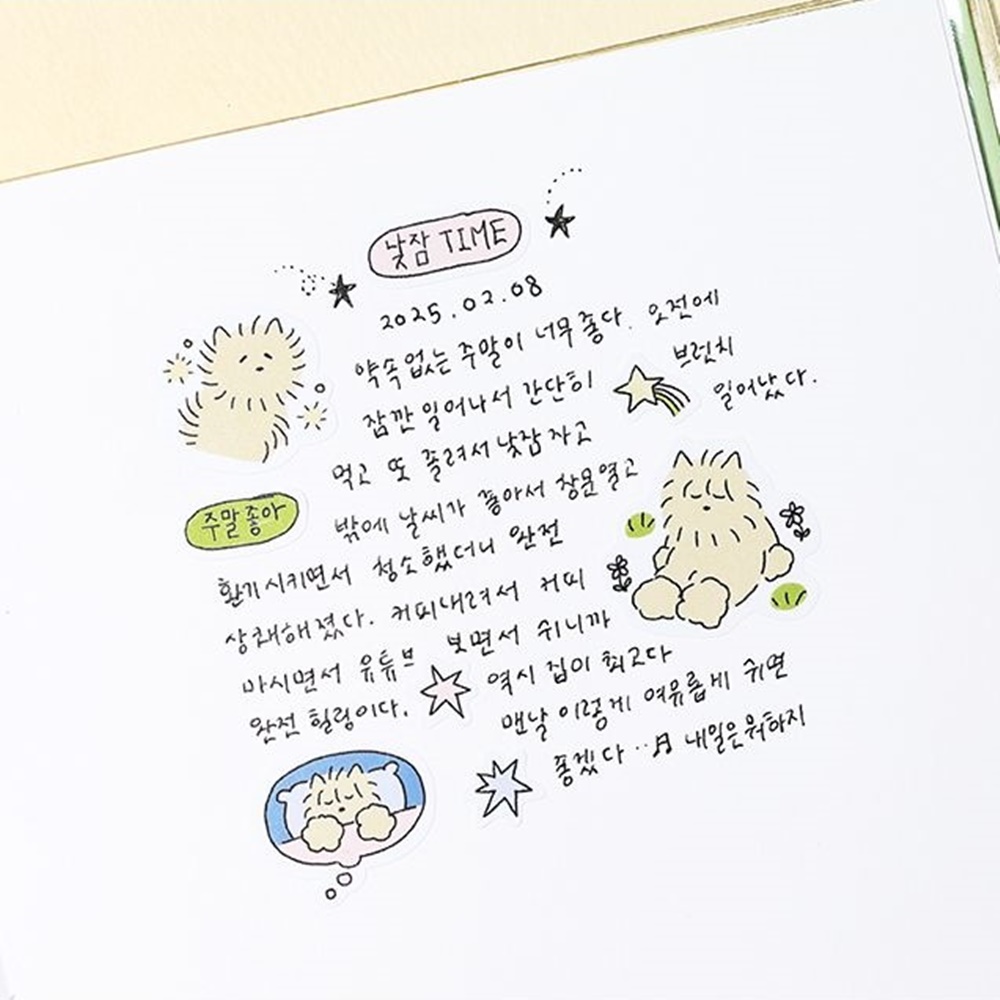 낮잠 TIME
2025.02.08
약속없는 주말이 너무 좋다. 오전에
잠깐 일어나서 간단히 브런치
먹고 또 졸려서 낮잠 자고 일어났다.
주말좋아
밖에 날씨가 좋아서 창문열고
환기시키면서 청소했더니 완전
상쾌해졌다. 커피내려서 커피
마시면서 유튜브 보면서 쉬니까
완전 힐링이다. 역시 집이 최고다
맨날 이렇게 여유롭게 쉬면
좋겠다..♬ 내일은 뭐하지